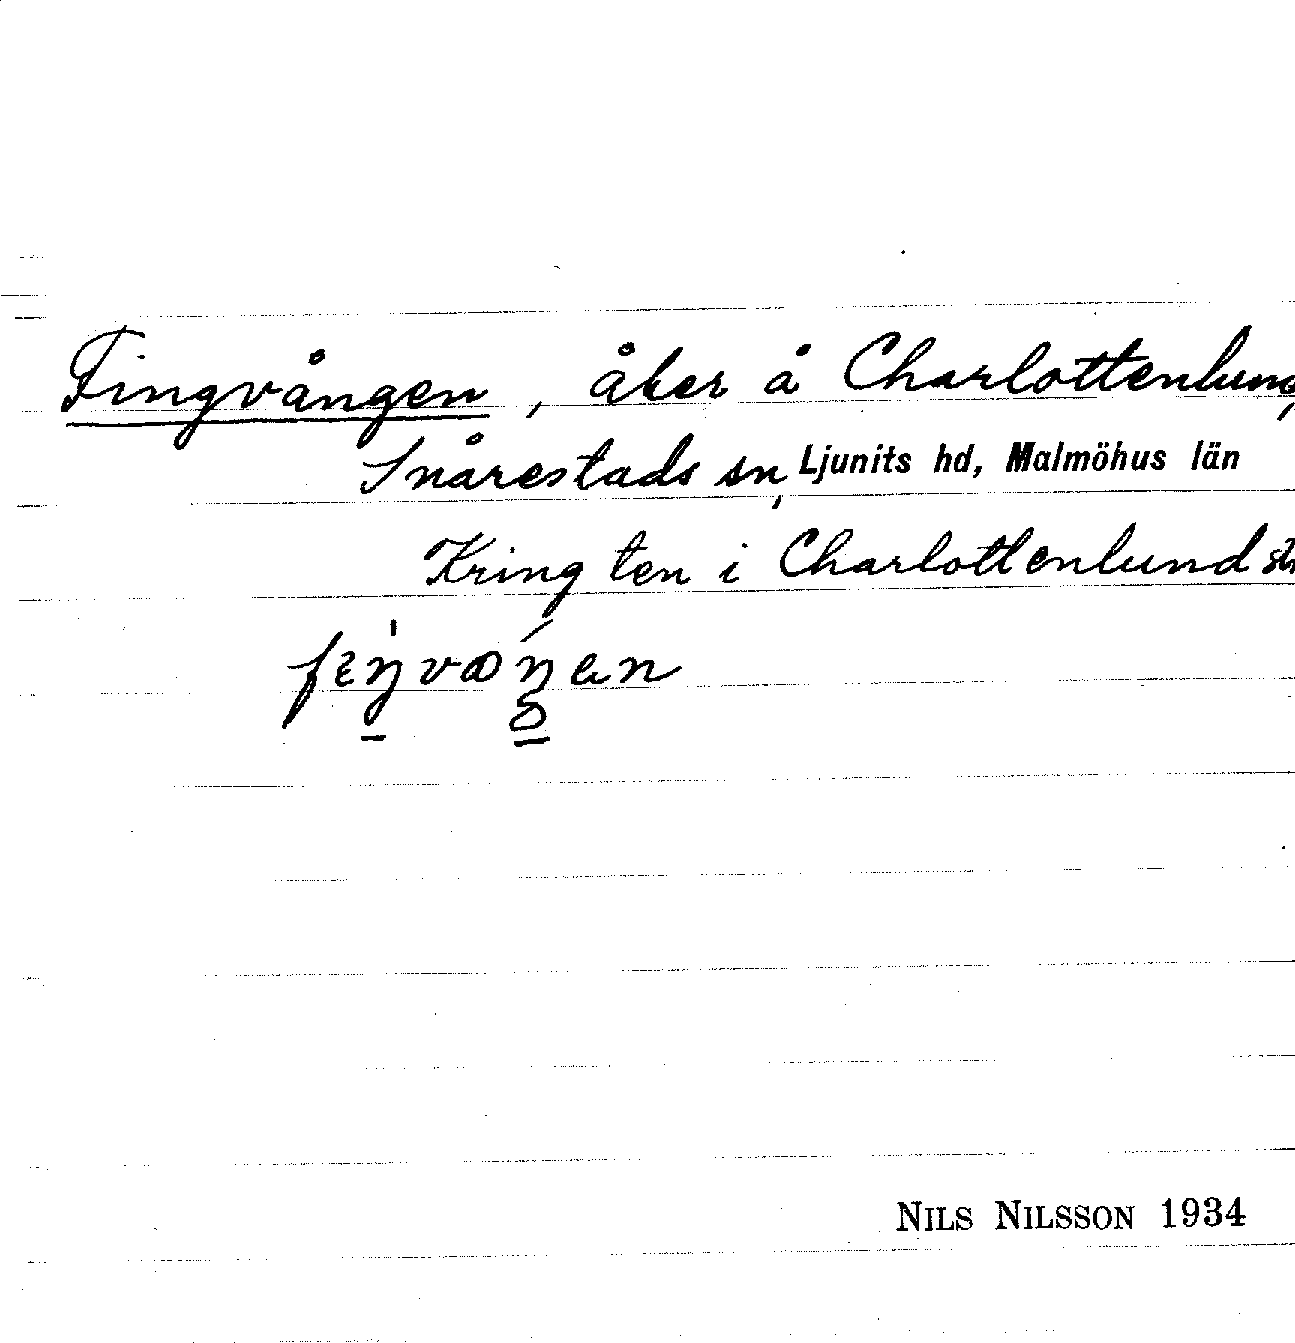 Fingvången, åker å Charlottenlund,
Snårestads sn, Ljunits hd, Malmöhus län
Kring ten i Charlottenlund
NILS NILSSON 1934